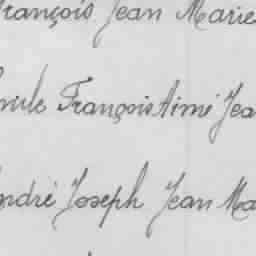 François Jean Marie
Emile François Aimé Jea
André Joseph Jean Ma